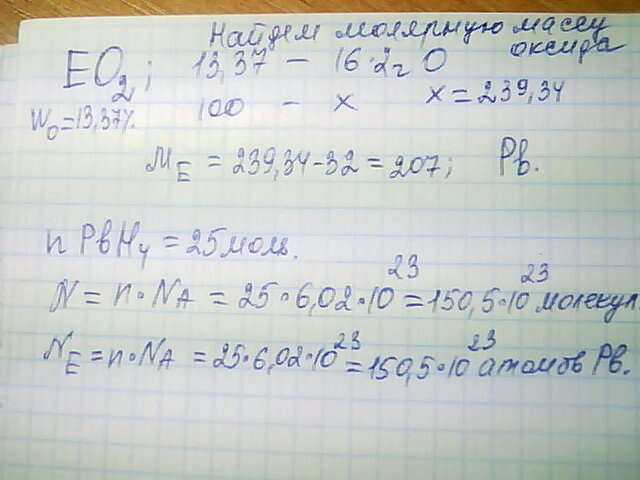 Найдем молярную массу
оксида
EO₂; 13,37 — 16·2г O
W₀=13,37%. 100 — x x = 239,34
M_E = 239,34-32 = 207; Pb.
n PbH₄ = 25 моль.
N = n·N_A = 25·6,02·10²³ = 150,5·10²³ молекул
N_E = n·N_A = 25·6,02·10²³ = 150,5·10²³ атомов Pb.